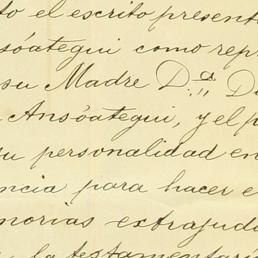 to el escrito present
sóategui como rep
su Madre D.ª D
Ansóategui, y el p
su personalidad en
ncia para hacer e
morias extrajud
la testamentari